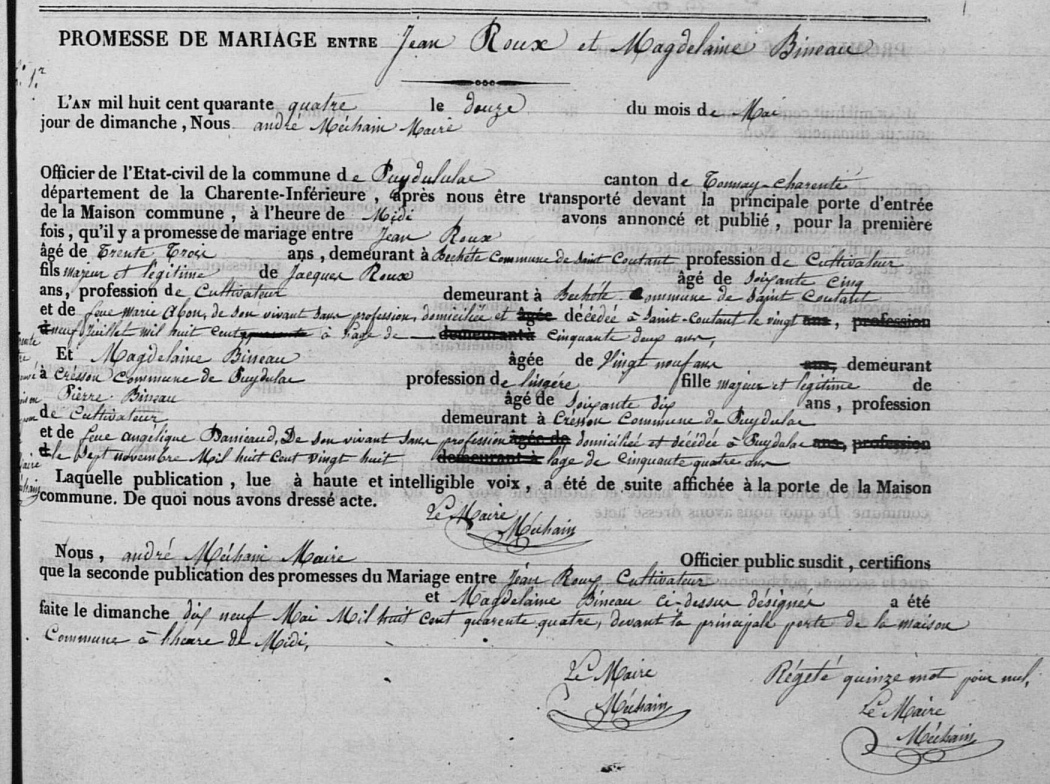 PROMESSE DE MARIAGE ENTRE Jean Roux et Magdelaine Bineau
L'AN mil huit cent quarante quatre le douze du mois de Mai
jour de dimanche, Nous andré Méchain Maire
Officier de l'Etat-civil de la commune de Puydulac canton de Tonnay-charente
département de la Charente-Inférieure, après nous être transporté devant la principale porte d'entrée
de la Maison commune, à l'heure de Midi avons annoncé et publié, pour la première
fois, qu'il y a promesse de mariage entre Jean Roux
âgé de Trente Trois ans, demeurant à Bechéte Commune de Saint Coutant profession de Cultivateur
fils majeur et legitime de Jacques Roux âgé de soixante cinq
ans, profession de Cultivateur demeurant à Bechéte Commune de Saint Coutant
et de feue Marie de son vivant sans profession, domiciliée et âgée décédée à Saint-Coutant le vingt ans, profession
neuf Juillet mil huit cent à l'age de demeurant à cinquante deux ans,
Et Magdelaine Bineau âgée de Vingt neuf ans ans, demeurant
à Cresson Commune de Puydulac profession de lingére fille majeur et legitime de
Pierre Bineau âgé de Soixante dix ans, profession
de Cultivateur demeurant à Cresson Commune de Puydulac
et de feue angelique De son vivant sans profession âgée de domiciliée et décédée à Puydulac ans, profession
le Sept novembre Mil huit Cent vingt huit demeurant à l'age de Cinquante quatre ans
Laquelle publication, lue à haute et intelligible voix, a été de suite affichée à la porte de la Maison
commune. De quoi nous avons dressé acte.
Le Maire
Méchain
Nous, andré Méchain Maire Officier public susdit, certifions
que la seconde publication des promesses du Mariage entre Jean Roux Cultivateur
et Magdelaine Bineau ci-dessus désignés a été
faite le dimanche dix neuf Mai Mil huit Cent quarente quatre, devant la principale porte de la maison
Commune à l'heure de Midi,
Le Maire
Méchain
Régeté quinze mot pour nul,
Le Maire
Méchain